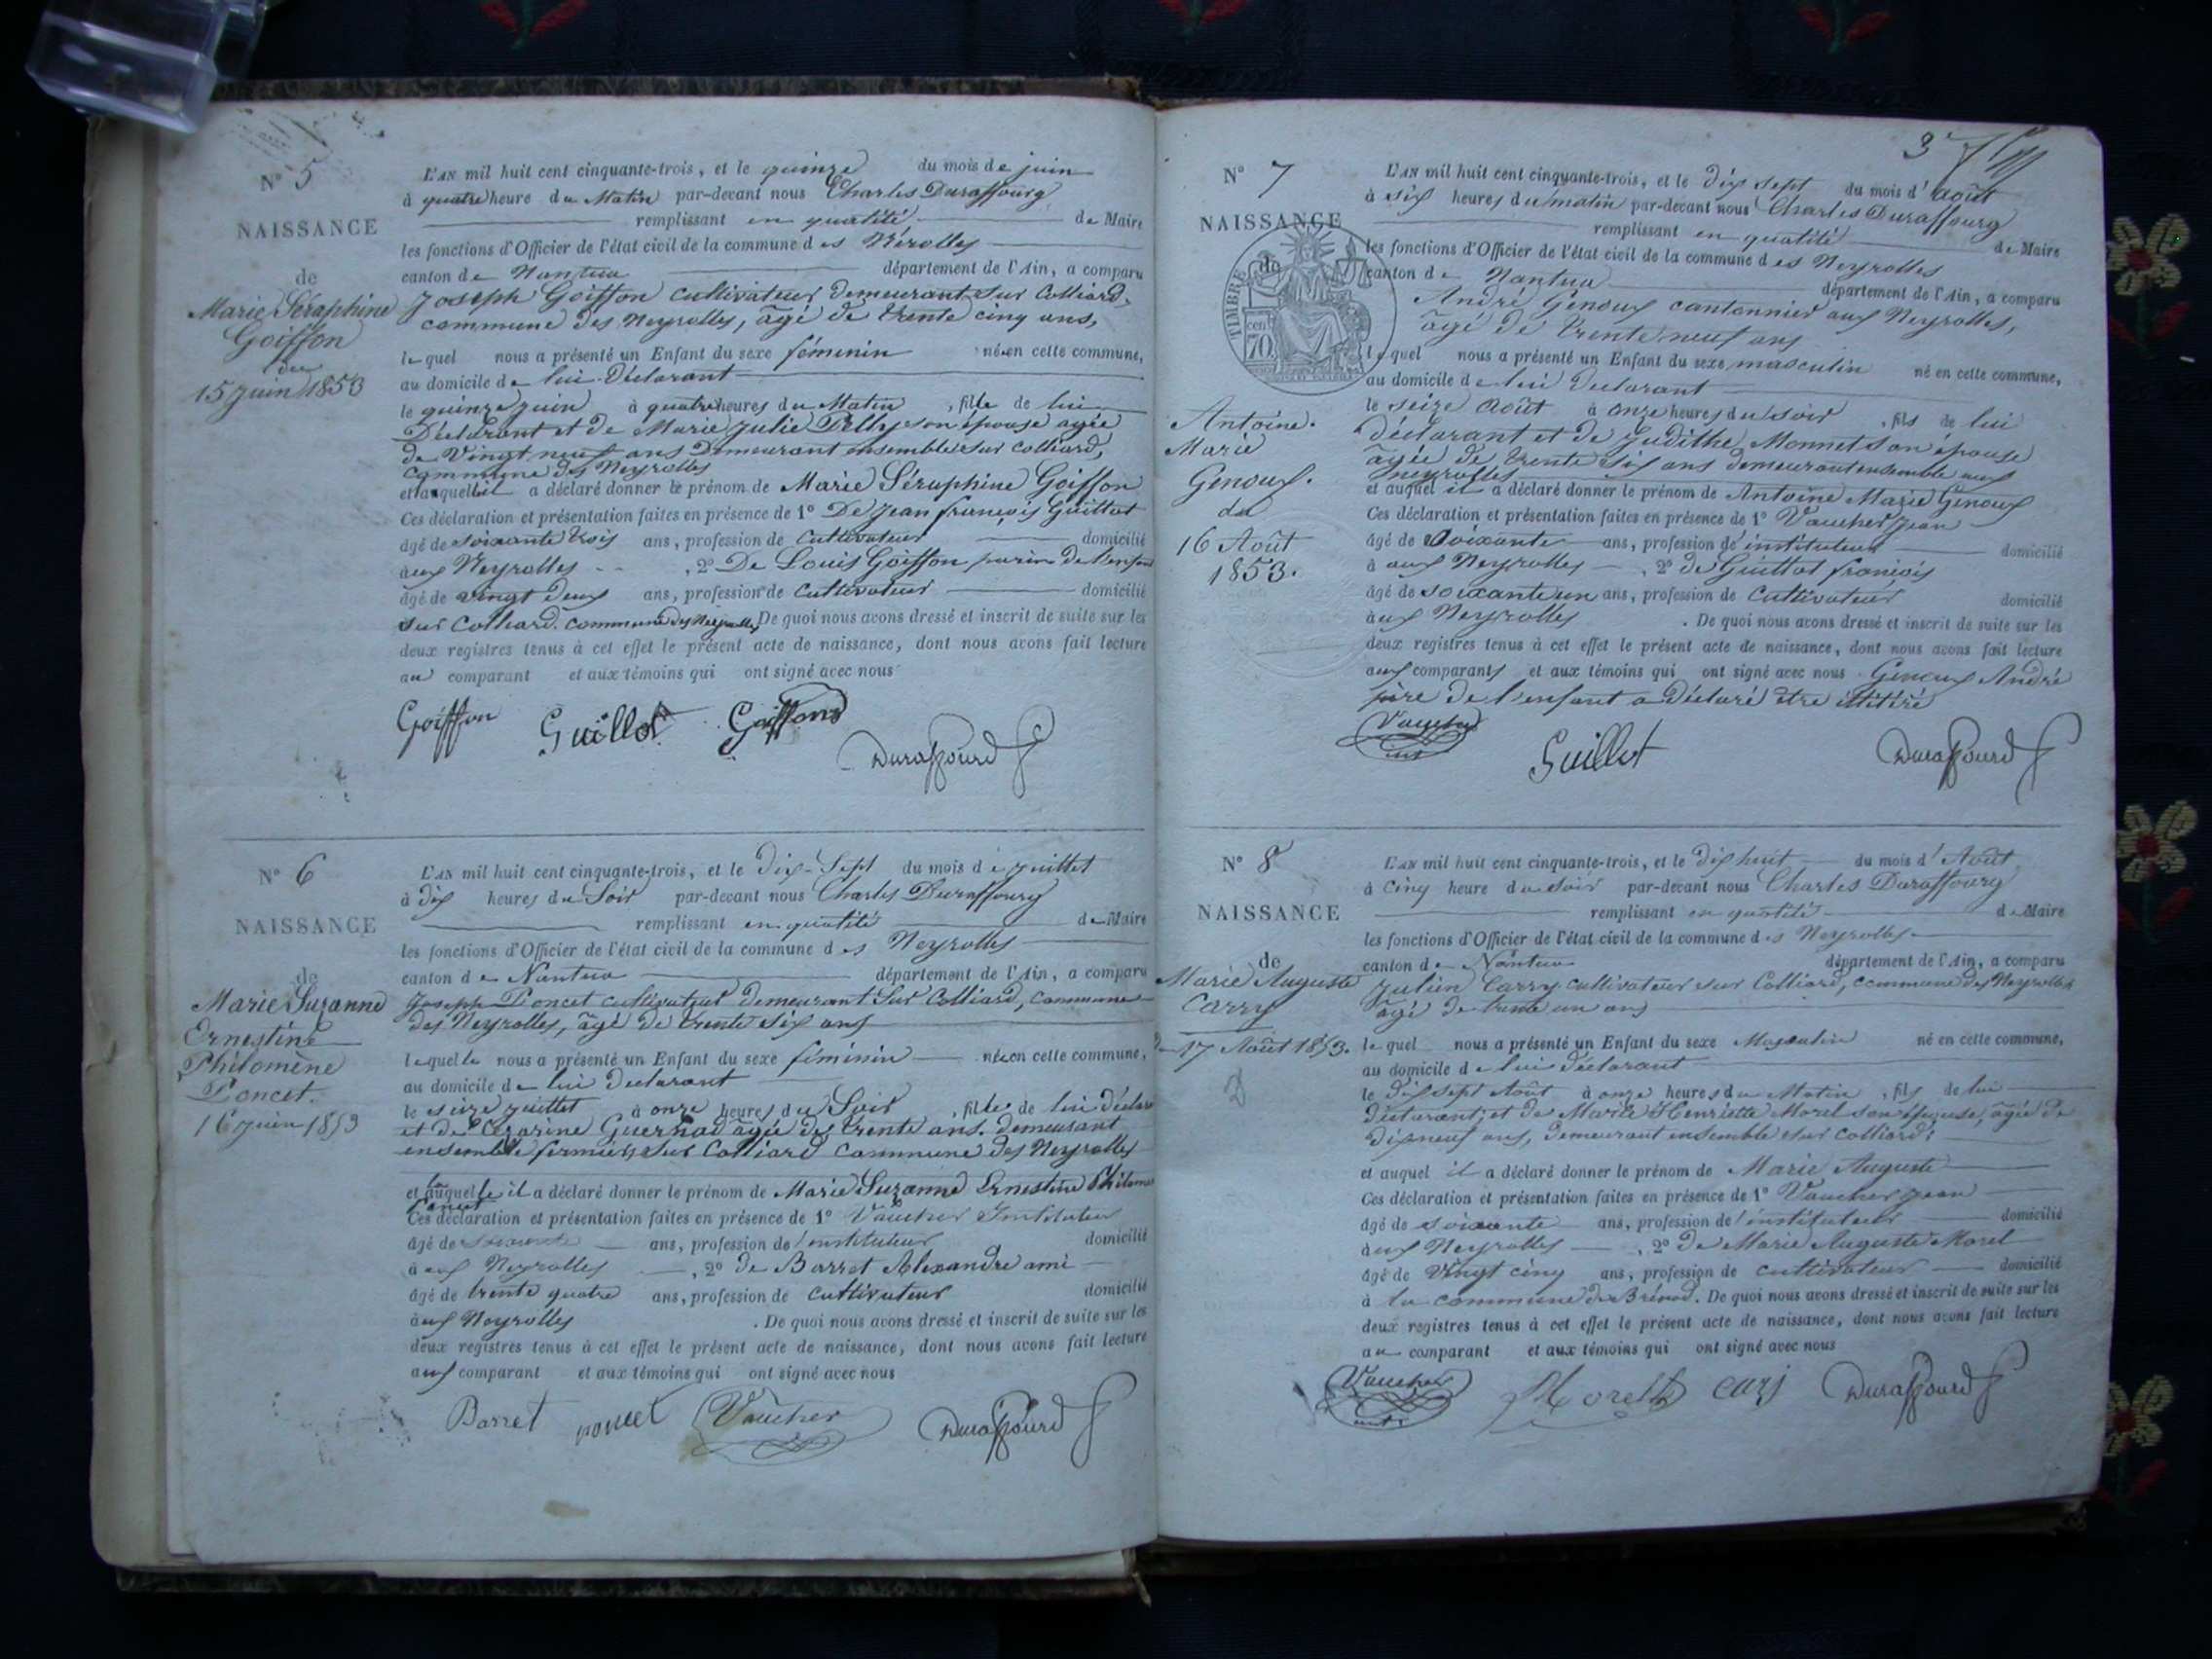 N° 5
NAISSANCE
de
Marie Séraphine
Goiffon
du
15 juin 1853
L'AN mil huit cent cinquante-trois, et le quinze du mois de juin
à quatre heure du Matin par-devant nous Charles Duraffourg
remplissant en qualité de Maire
les fonctions d'Officier de l'état civil de la commune des Nérolles
canton de Nantua département de l'Ain, a comparu
Joseph Goiffon cultivateur demeurant sur Colliard,
commune des Neyrolles, âgé de trente cinq ans,
lequel nous a présenté un Enfant du sexe féminin né en cette commune,
au domicile de lui Déclarant
le quinze juin à quatre heures du Matin, fille de lui
Déclarant et de Marie Julie son épouse agée
de Vingt neuf ans Demeurant ensemble sur Colliard,
Commune des Neyrolles
et auquel il a déclaré donner le prénom de Marie Séraphine Goiffon
Ces déclaration et présentation faites en présence de 1° De Jean françois Guillot
âgé de soixante trois ans, profession de Cultivateur domicilié
aux Neyrolles , 2° De Louis Goiffon de l'enfant
âgé de vingt deux ans, profession de Cultivateur domicilié
sur Colliard. commune des Neyrolles De quoi nous avons dressé et inscrit de suite sur les
deux registres tenus à cet effet le présent acte de naissance, dont nous avons fait lecture
au comparant et aux témoins qui ont signé avec nous
Goiffon Guillot Goiffond Duraffourd
N° 6
NAISSANCE
de
Marie Suzanne
Ernestine
Philomène
Poncet.
16 juin 1853
L'AN mil huit cent cinquante-trois, et le Dix-Sept du mois de juillet
à dix heures du Soir par-devant nous Charles Duraffourg
remplissant en qualité de Maire
les fonctions d'Officier de l'état civil de la commune des Neyrolles
canton de Nantua département de l'Ain, a comparu
Joseph Poncet cultivateur demeurant Sur Colliard, Commune
des Neyrolles, âgé de trente six ans
lequelle nous a présenté un Enfant du sexe féminin né en cette commune,
au domicile de lui declarant
le seize juillet à onze heures du Soir , fille de lui déclarant
et de Cézarine Guernad agée de trente ans. demeurant
ensemble fermiers sur Colliard Commune des Neyrolles
et auquelle il a déclaré donner le prénom de Marie Suzanne Ernestine
Poncet
Ces déclaration et présentation faites en présence de 1° Vaucher Instituteur
âgé de soixante ans, profession de l'instituteur domicilié
à aux Neyrolles , 2° de Barret Alexandre ami
âgé de trente quatre ans, profession de Cultivateur domicilié
aux Neyrolles . De quoi nous avons dressé et inscrit de suite sur les
deux registres tenus à cet effet le présent acte de naissance, dont nous avons fait lecture
aux comparant et aux témoins qui ont signé avec nous
Barret poncet Vaucher Duraffourd
37
N° 7
NAISSANCE
de
TIMBRE
cen
70
Antoine.
Marie
Genoux.
du
16 Août
1853.
L'AN mil huit cent cinquante-trois, et le dix sept du mois d'août
à six heures du matin par-devant nous Charles Duraffourg
remplissant en qualité de Maire
les fonctions d'Officier de l'état civil de la commune des Neyrolles
canton de Nantua département de l'Ain, a comparu
André Genoux cantonnier aux Neyrolles,
âgé de trente neuf ans
lequel nous a présenté un Enfant du sexe masculin né en cette commune,
au domicile de lui declarant
le seize Août à onze heures du soir , fils de lui
déclarant et de Judithe Monnet son épouse
âgée de trente six ans demeurant ensemble aux
neyrolles
et auquel il a déclaré donner le prénom de Antoine Marie Genoux
Ces déclaration et présentation faites en présence de 1° Vaucher jean
âgé de soixante ans, profession de instituteur domicilié
à aux Neyrolles , 2° de Guillot françois
âgé de soixante un ans, profession de Cultivateur domicilié
aux Neyrolles . De quoi nous avons dressé et inscrit de suite sur les
deux registres tenus à cet effet le présent acte de naissance, dont nous avons fait lecture
aux comparants et aux témoins qui ont signé avec nous Genoux André
père de l'enfant a déclaré être
Vaucher Guillot Duraffourd
inst
N° 8
NAISSANCE
de
Marie Auguste
Carry
du 17 Août 1853.
L'AN mil huit cent cinquante-trois, et le dix huit du mois d'Août
à Cinq heure du soir par-devant nous Charles Duraffourg
remplissant en qualité de Maire
les fonctions d'Officier de l'état civil de la commune des Neyrolles
canton de Nantua département de l'Ain, a comparu
Julien Carry cultivateur sur Colliard, commune des Neyrolles
âgé de trente un ans
lequel nous a présenté un Enfant du sexe Masculin né en cette commune,
au domicile de lui déclarant
le dix sept Août à onze heures du Matin , fils de lui
déclarant, et de Marie Henriette Morel son épouse, agée de
dix neuf ans, demeurant ensemble sur Colliard;
et auquel il a déclaré donner le prénom de Marie Auguste
Ces déclaration et présentation faites en présence de 1° Vaucher jean
âgé de soixante ans, profession de l'instituteur domicilié
aux Neyrolles , 2° de Marie Auguste Morel
âgé de Vingt cinq ans, profession de cultivateur domicilié
à la commune de Brénod. De quoi nous avons dressé et inscrit de suite sur les
deux registres tenus à cet effet le présent acte de naissance, dont nous avons fait lecture
au comparant et aux témoins qui ont signé avec nous
Vaucher Morelt carj Duraffourd